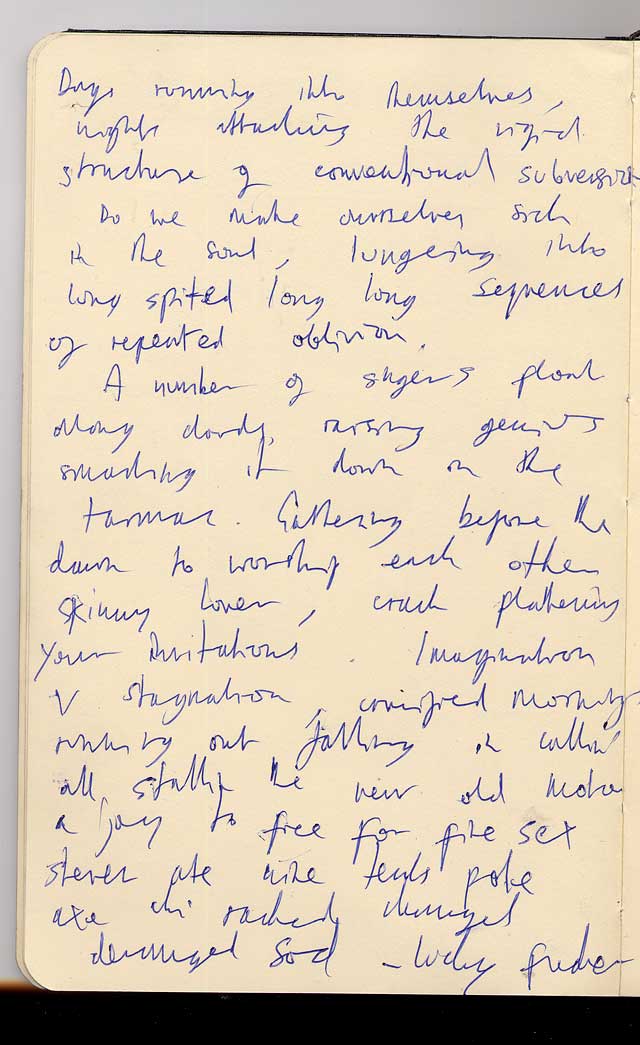 Days running into themselves,
nights attacking the rigid
structure of conventional subversion
Do we make ourselves sick
in the soul, lungering into
long spited long long sequences
of repeated oblivion.
A number of singers float
along cloudy, raising genius
smacking it down on the
tarmac. Gathering before the
dawn to worship each other
skinny lover, crack plattering
your invitations. Imagination
V stagnation, crucified mornings
running out falling in
all, the new old
a joy to free for five sex
steven ate nine poke
axe
deranged sod - lucky